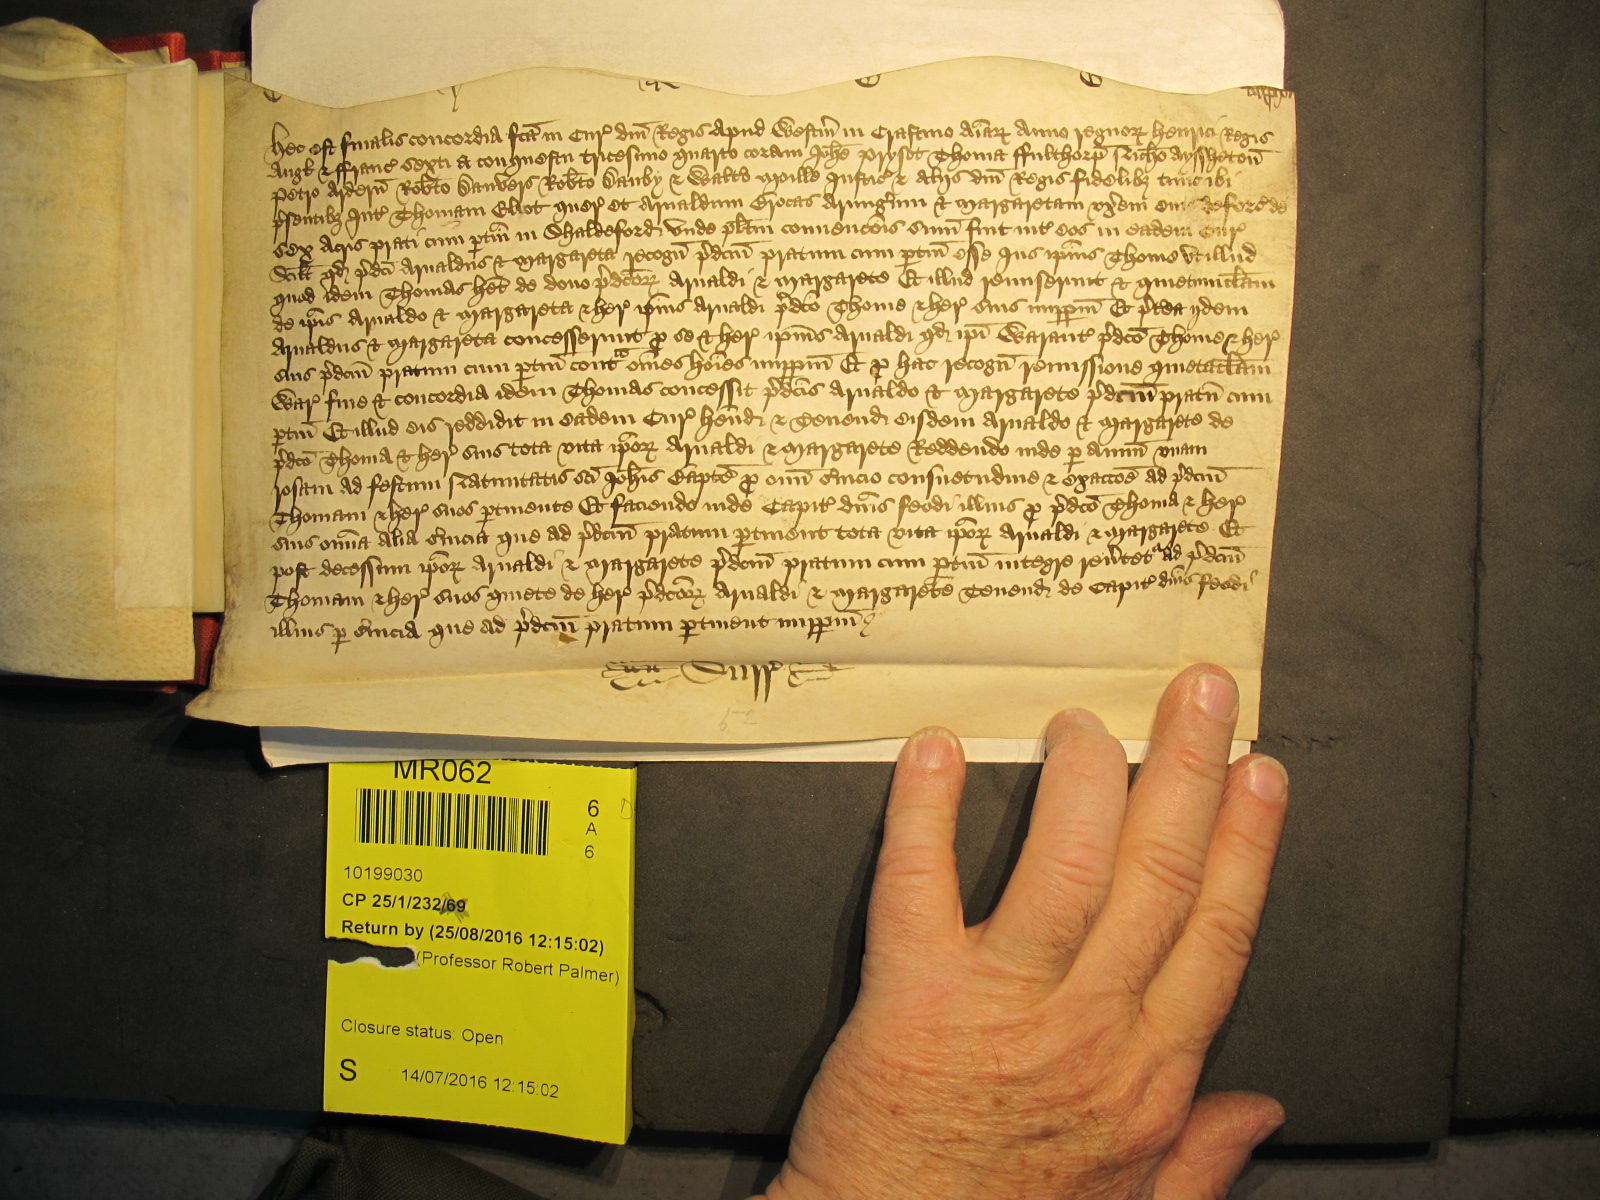 Hec est finalis concordia fca in Cur dni Regis Apud Westm in Crastino Aiar Anno regnor Henrici Regis
Angl & ffranc sexti a conquestu tricesimo quarto coram Johe Prysot Thoma ffulthorp Nicho Ayssheton
Petro Ardern Robto Danvers Robto Danby & Walto Moille Justic & Alijs dni Regis fidelibz tunc ibi
psentibz Int Thomam Eliot quer Et Arnaldum Crocas Armigerum & Margaretam uxem eius deforc de
sex Acris prati cum ptin in Shaldeford unde plitm convencois sum fuit int eos in eadem Cur
Scilt qd pdci Arnaldus & Margareta recogn pdcm pratum cum ptin esse Jus ipius Thome Ut illud
quod idem Thomas het de dono pdcor Arnaldi & Margarete Et illud remiserunt & quietumclam
de ipis Arnaldo & Margareta & her ipius Arnaldi pdco Thome & her suis imppm Et ptea ijdem
Arnaldus & Margareta concesserunt p se & her ipius Arnaldi qd ipi Warant pdco Thome & her
suis pdcm pratum cum ptin conta omes hoies imppm Et p hac recogn remissione quietaclam
War fine & concordia idem Thomas concessit pdcis Arnaldo & Margarete pdcm pratu cum
ptin Et illud eis reddidit in eadem Cur Hend & Tenend eisdem Arnaldo & Margarete de
pdco Thoma & her suis tota vita ipor Arnaldi & Margarete Reddendo inde p annu unam
rosam ad festum Nativitatis sci Johis Bapte p omi svicio consuetudine & exaccoe ad pdcm
Thomam & her suos ptinente Et faciendo inde Capit dnis feodi illius p pdco Thoma & her
suis omia alia svicia que ad pdcm pratum ptinent tota vita ipor Arnaldi & Margarete Et
post decessum ipor Arnaldi & Margarete pdcm pratum cum ptin integre revtet ad pdcm
Thomam & her suos quiete de her pdcor Arnaldi & Margarete Tenend de Capit dnis feodi
illius p svicia que ad pdcm pratum ptinent imppm
Surr
52
MR062
6
A
6
10199030
CP 25/1/232/69
Return by (25/08/2016 12:15:02)
(Professor Robert Palmer)
Closure status: Open
S 14/07/2016 12:15:02